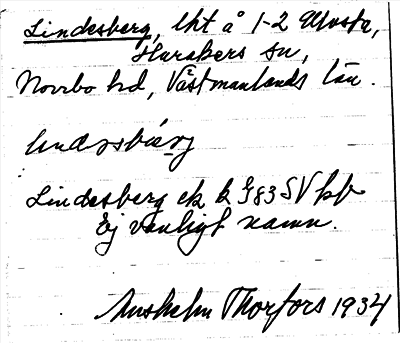 Lindesberg, lht å 1-2 Ulvsta,
Harakers sn,
Norrbo hd, Västmanlands län.
Lindesberg ek bl 983 SV kb
Ej vanligt namn.
Anshelm Thorfors 1934